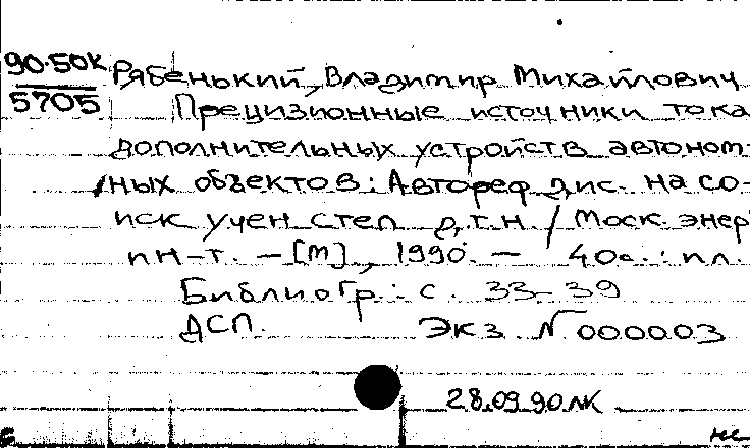 90-50к Рябенький, Владимир Михайлович
5705 Прецизионные источники тока
дополнительных устройств автоном-
ных объектов: Автореф дис. на со-
иск учен степ д.т.н / Моск. энер
ин-т. - [М], 1990. - 40с.: ил.
Библиогр: с. 33-39
ДСП. Экз. N 000003
28.09.90